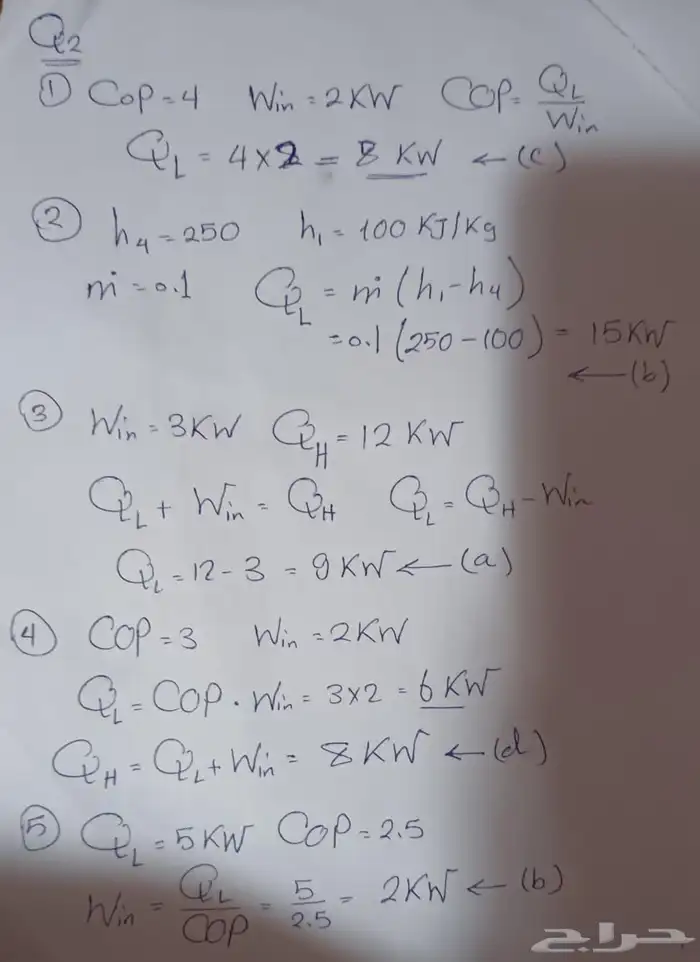 Q2
① COP = 4 Win = 2KW COP = QL/Win
QL = 4×2 = 8 KW ← (c)
② h4 = 250 h1 = 100 KJ/Kg
ṁ = 0.1 QL = ṁ (h1 - h4)
= 0.1 (250 - 100) = 15KW
← (b)
③ Win = 3KW QH = 12 KW
QL + Win = QH QL = QH - Win
QL = 12 - 3 = 9KW ← (a)
④ COP = 3 Win = 2KW
QL = COP . Win = 3×2 = 6 KW
QH = QL + Win = 8KW ← (d)
⑤ QL = 5KW COP = 2.5
Win = QL/COP = 5/2.5 = 2KW ← (b)
حراج